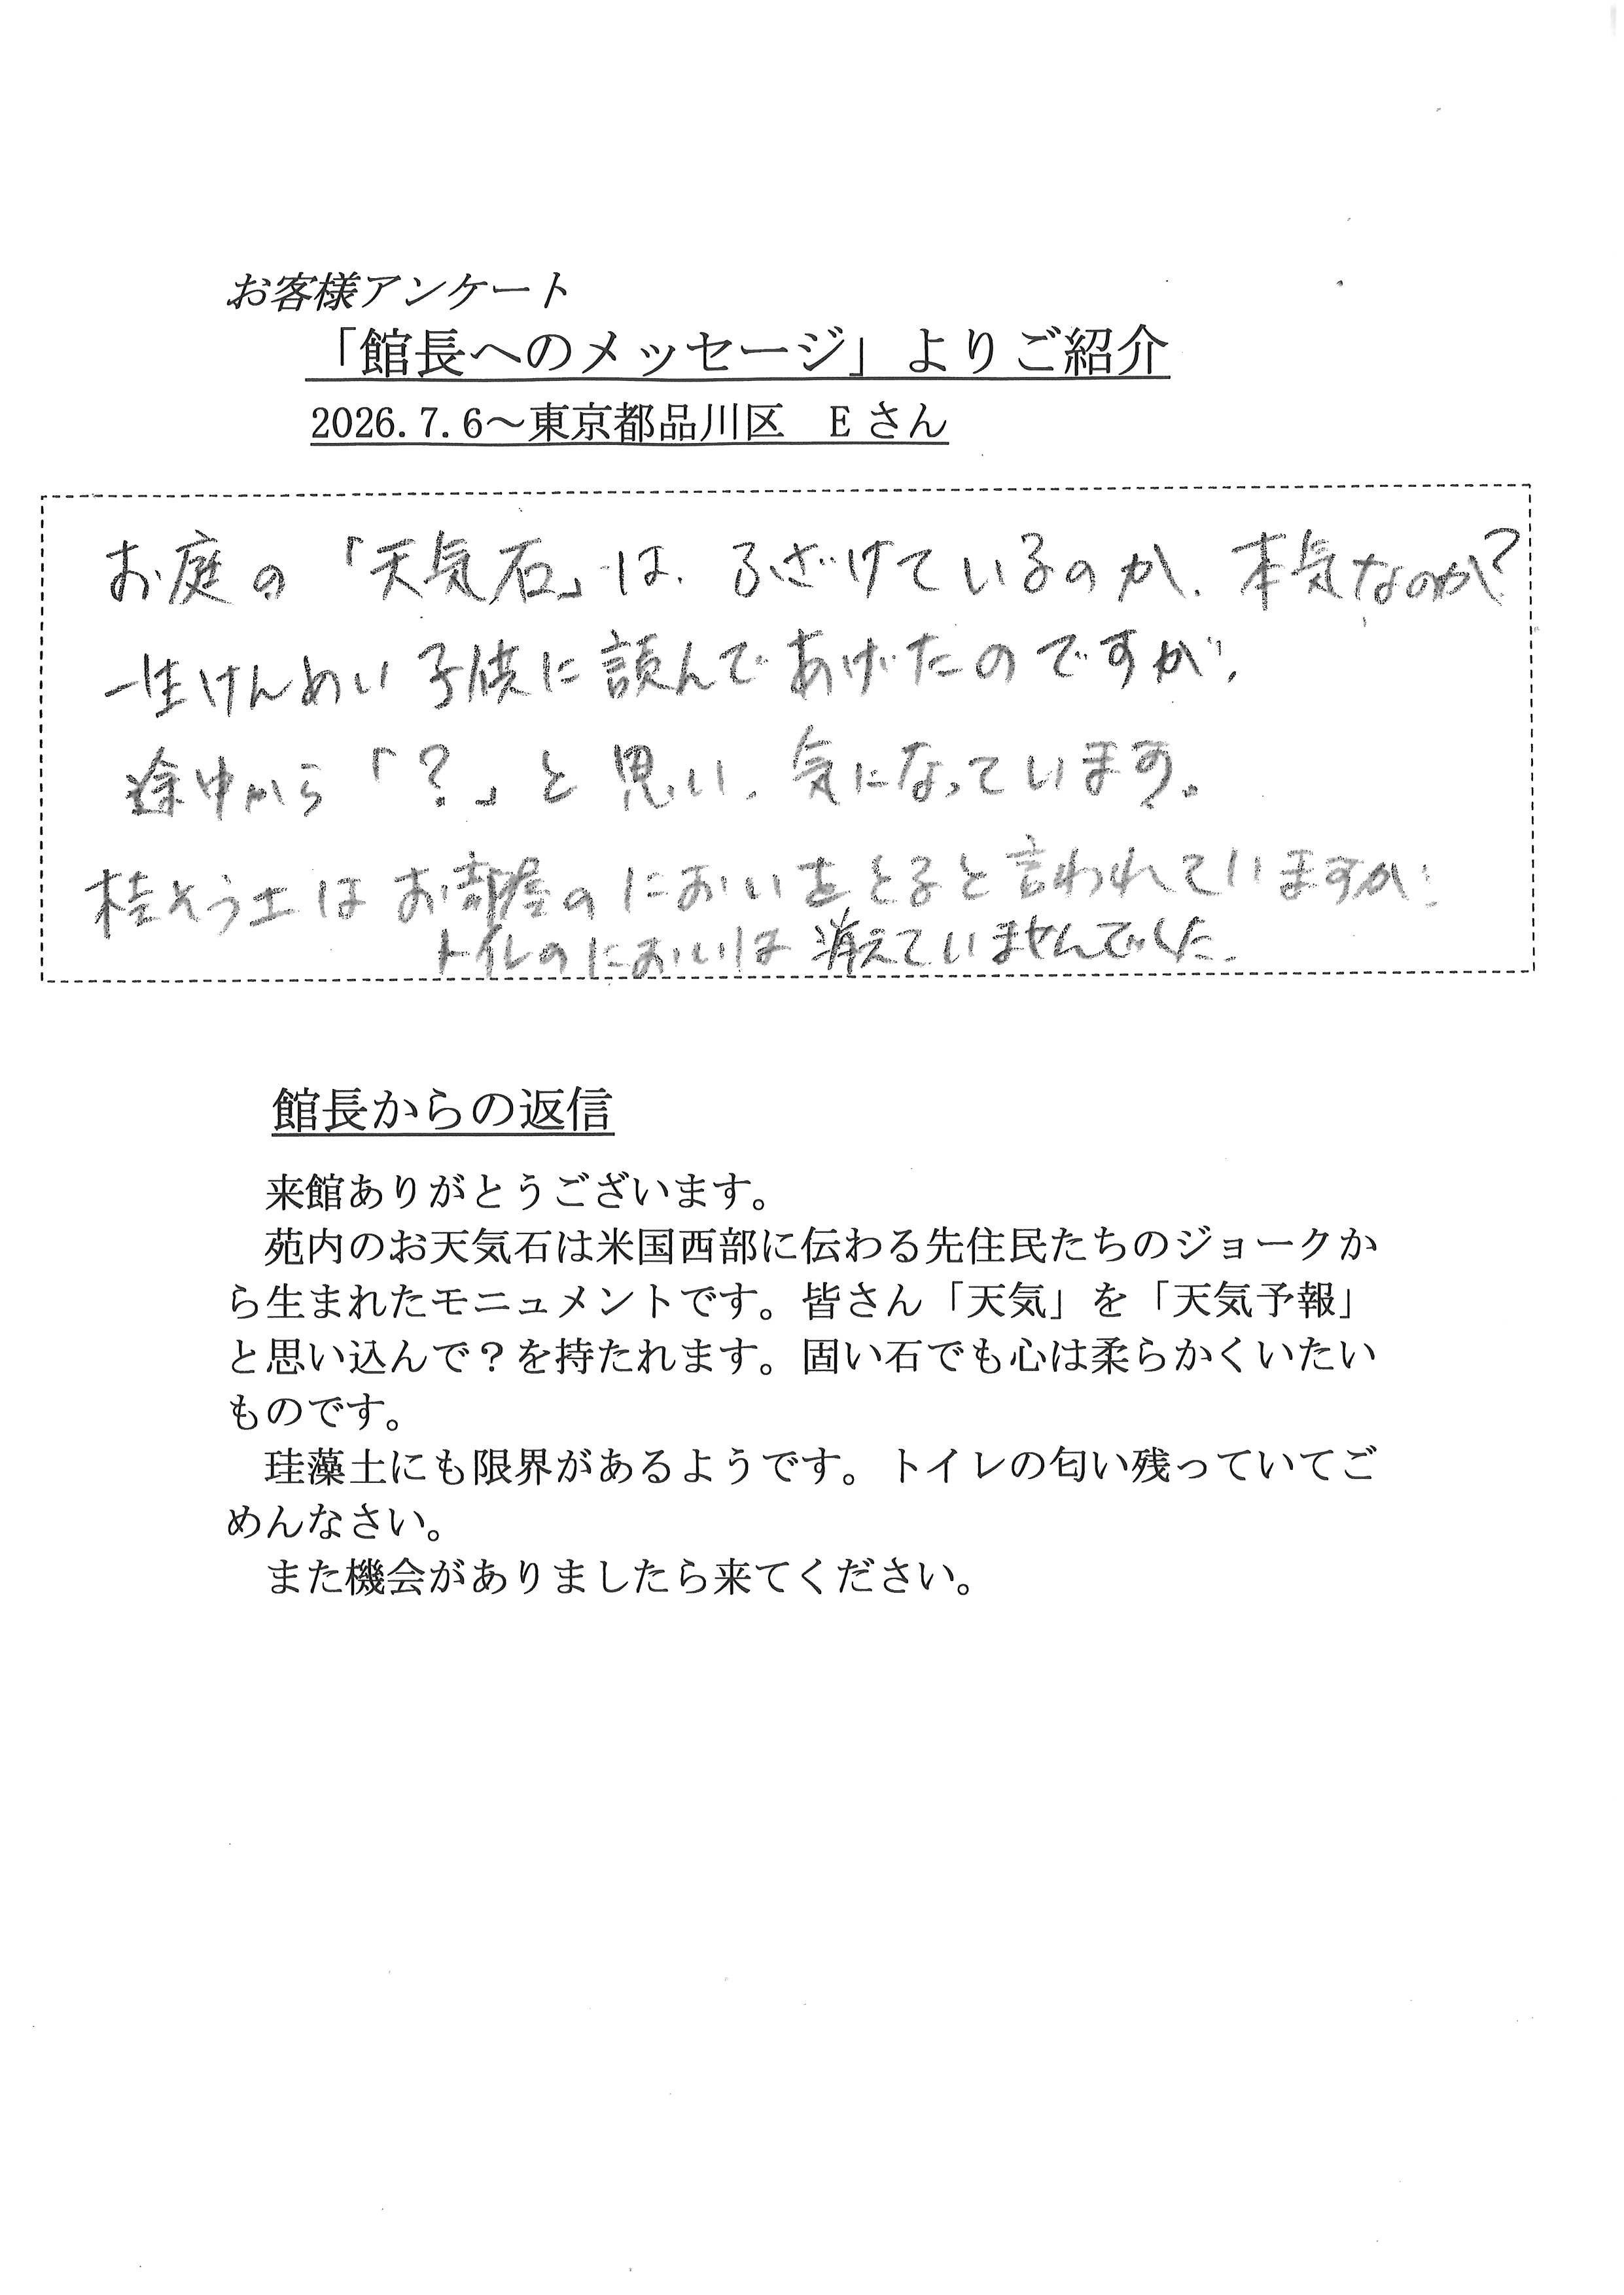 お客様アンケート
「館長へのメッセージ」よりご紹介
2026.7.6～東京都品川区　Eさん
お庭の「天気石」は、ふざけているのか、本気なのか?
一生けんめい子供に読んであげたのですが、
途中から「?」と思い、気になっています。
桂そう土はお部屋のにおいをとると言われていますが、
トイレのにおいは消えていませんでした。
館長からの返信
来館ありがとうございます。
苑内のお天気石は米国西部に伝わる先住民たちのジョークか
ら生まれたモニュメントです。皆さん「天気」を「天気予報」
と思い込んで？を持たれます。固い石でも心は柔らかくいたい
ものです。
珪藻土にも限界があるようです。トイレの匂い残っていてご
めんなさい。
また機会がありましたら来てください。